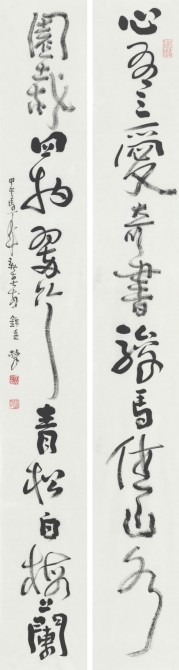 心有三愛奇書駿馬佳山水
園栽四物翠竹青松白梅蘭
甲午